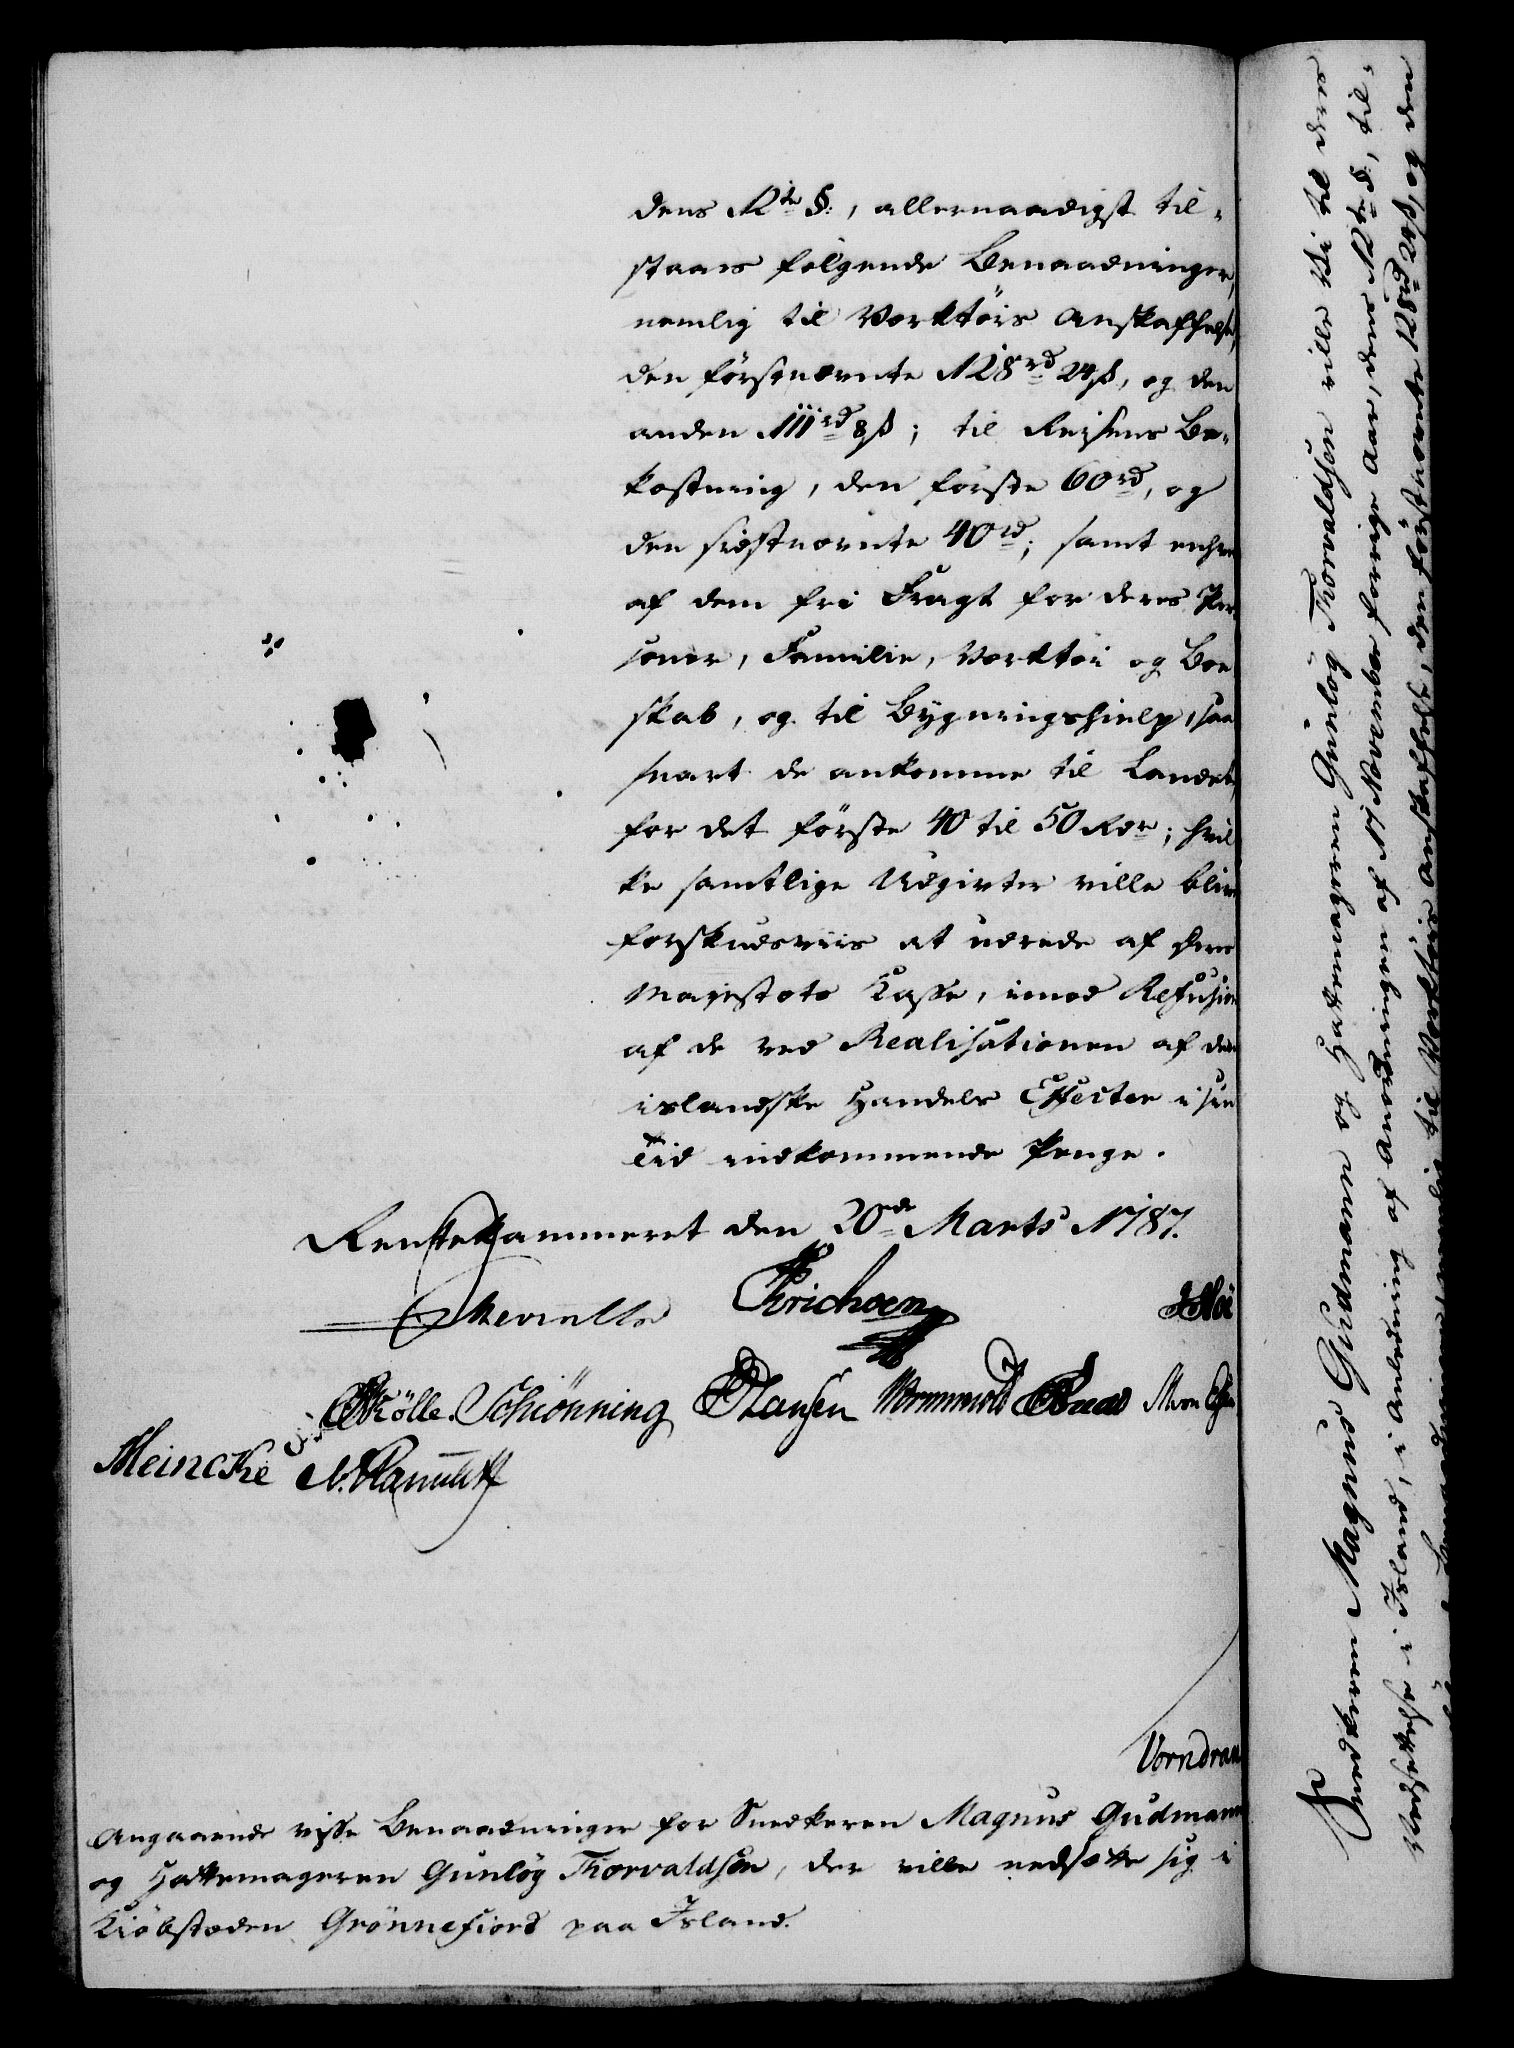 dens 12te §:, allernaadigst til-
staaes følgende Benaadninger,
nemlig til Værktöis Anskaffelse,
den förstnævnte 128rd 24ß, og den
anden 111rd 8ß; til Reisens Be-
kostning, den første 60rd, og
den sidstnævnte 40rd; samt enhver
af dem fri Fragt for deres Per-
soner, Familie, Værktöi og Boe
skab, og til Bygningshielp, saa
snart de ankomme til Landet,
for det förste 40 til 50 Rdr; hvil
ke samtlige Udgivter ville blive
forskudsviis at udrede af Deres
Majestæts Kasse, imod Refusion
af de ved Realisationen af den
islandske Handels Effecter i sin
Tid indkommende Penge.
Rentekammeret den 20de Marts 1787.
Erichsen
Schiönning Hansen Wormskiold
Meincke
Vorndran
Angaaende visse Benaadninger for Snedkeren Magnus Gudmann
og Hattemageren Gunlög Thorvaldsen, der ville nedsætte sig i
Kiöbstæden Grönnefiord paa Island.
Snedkeren Magnus Gudmann og Hattemageren Gunlög Thorvaldsen ville til deres
Nedsættelse i Island, i Anledning af Anordningen af 17 November forrige Aar, dens 12te §:, til-
Benaadninger, nemlig til Værktöis Anskaffelse, den förstnævnte 128rd 24ß, og den